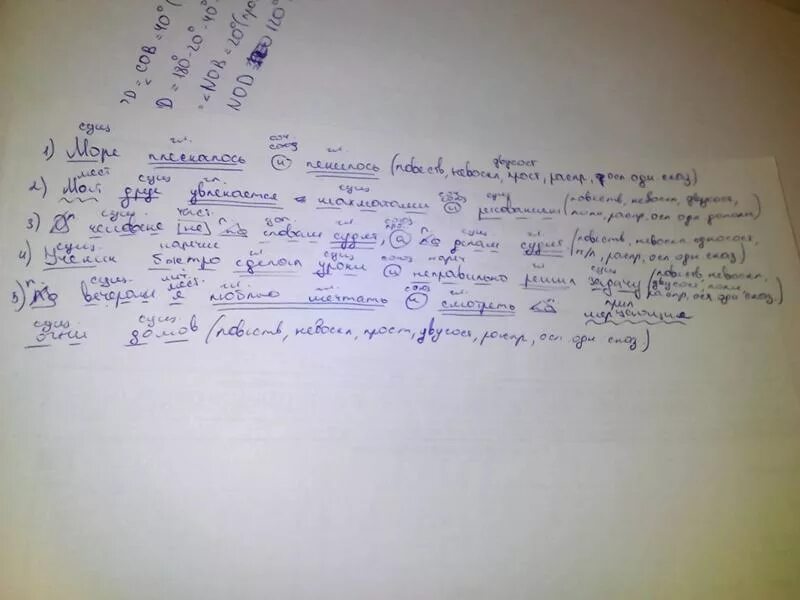 D = < COB = 40°
D = 180° - 20° - 40°
= < NOB = 20°
NOD = 120°
сущ гл. соч. союз гл. двусост
1) Море плескалось и пенилось (повеств, невоскл, прост, распр, осл одн сказ)
мест сущ гл. сущ соч. союз сущ
2) Мой друг увлекается шахматами и рисованием (повеств, невоскл, двусост, полн, распр, осл одн дополн)
п сущ част. п сущ. гл. союз п. сущ гл.
3) О человеке [не] по словам судят, а по делам судят (повеств, невоскл, односост, п/п, распр, осл одн сказ)
сущ наречие гл. сущ союз нареч гл. сущ
4) Ученик быстро сделал уроки и неправильно решил задачу (повеств, невоскл, двусост, полн распр, осл, одн сказ)
п. сущ. лич. мест. гл. гл. союз гл. п прил
5) По вечерам я люблю мечтать и смотреть на мерцающие
сущ сущ.
огни домов (повеств, невоскл, прост, двусост, распр, осл одн сказ)